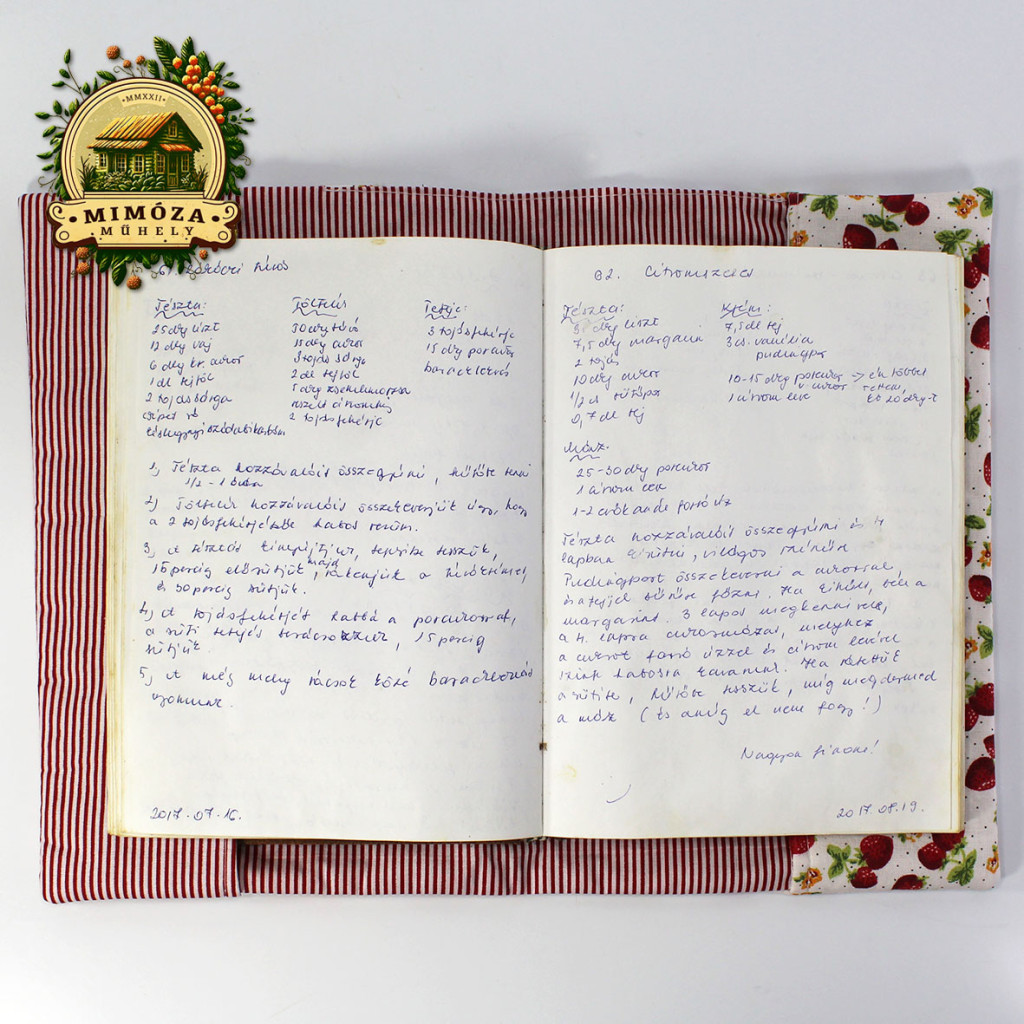 MMXXII
MIMÓZA
MŰHELY
Tészta:
25 dkg liszt
12 dkg vaj
6 dkg kr. cukor
1 dl tejföl
2 tojássárga
csipet só
késhegynyi szódabikarbóna
Töltelék
50 dkg túró
15 dkg cukor
3 tojás sárga
2 dl tejföl
5 dkg zsemlemorzsa
reszelt citromhéj
2 tojásfehérje
Teteje:
3 tojásfehérje
15 dkg porcukor
baracklekvár
1, Tészta hozzávalóit összegyúrni, hűtőbe tenni
1/2 - 1 órára
2, Töltelék hozzávalóit összekeverjük úgy, hogy
a 2 tojásfehérjéből habot verünk.
3, A tésztát kinyújtjuk, tepsibe tesszük,
15 percig elősütjük, majd rákenjük a
és 30 percig sütjük.
4, A tojásfehérjét habbá a porcukorral,
a süti tetejét berácsozzuk, 15 percig
sütjük
5, A még meleg rácsok közé baracklekvárt
nyomunk.
2017.07.16.
82. Citromszelet
Tészta:
dkg liszt
7,5 dkg margarin
2 tojás
10 dkg cukor
1/2 cs sütőpor
0,7 dl tej
Krém:
7,5 dl tej
3 cs. vanília
pudingpor
10-15 dkg porcukor → én többet
v. cukor tettem,
1 citrom leve kb 20 dkg-t
Máz:
25-30 dkg porcukor
1 citrom leve
1-2 evőkanál forró víz
Tészta hozzávalóit összegyúrni és 4
lapban kisütni, világos színűre
Pudingport összekeverni a cukorral
és a tejjel sűrűre főzni. Ha kihűlt, bele a
margarint. 3 lapot megkenni vele,
a 4. lapra cukormázat, melyhez
a cukrot forró vízzel és citrom levével
habosra kavarunk. Ha
a sütire, hűtőbe tesszük, míg megdermed
a máz (És amíg el nem fogy!)
Nagyon finom!
2017.08.19.